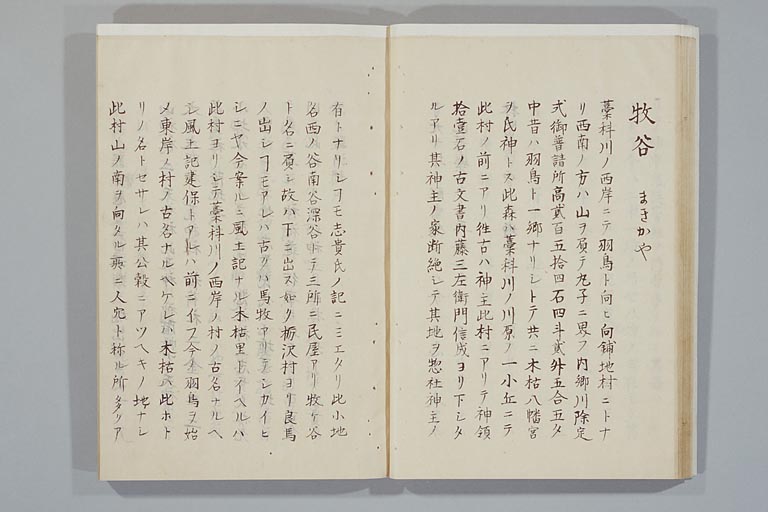 牧谷　まきかや
藁科川ノ西岸ニテ羽鳥ト向ヒ向鋪地村ニトナ
リ西南ノ方ハ山ヲ負テ丸子ニ界フ内郷川除定
式御普請所高貳百五拾四石四斗貳舛五合五夕
中昔ハ羽鳥ト一郷ナリシトテ共ニ木枯八幡宮
ヲ氏神トス此森ハ藁科川ノ川原ノ一小丘ニテ
此村ノ前ニアリ徃古ハ神主此村ニアリテ神領
拾壹石ノ古文書内藤三左衛門信成ヨリ下シタ
ルアリ其神主ノ家断絶シテ其地ヲ惣社神主ノ
有トナリシヿモ志貴氏ノ記ニミエタリ此小地
名西ノ谷南谷深谷トテ三所ニ民屋アリ牧ケ谷
トハ名ニ負シ故ハ下ニ出ス如ク栃沢村ヨリ良馬
ノ出シヿモアレハ古クハ馬牧アリテシカイヒ
シニヤ今案ルニ風土記ナル木枯里トイヘルハ
此村ヨリシテ藁科川ノ西岸ノ村ノ古名ナルヘ
シ風土記建保トアルハ前ニイフ今ノ羽鳥ヲ始
メ東岸ノ村ノ古名ナルヘケレハ木枯ハ此ホト
リノ名トセサレハ其公穀ニアツヘキノ地ナシ
此村山ノ南ヲ向タル所ニ人穴ト称ル所多クア